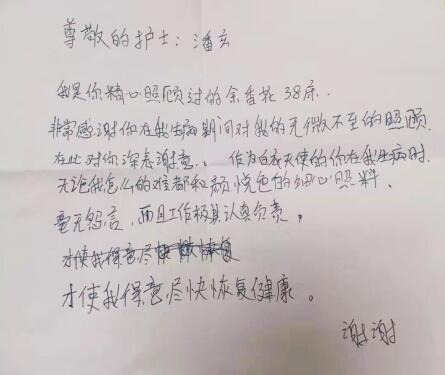 尊敬的护士：潘玄
我是你精心照顾过的余香花38床.
非常感谢你在我生病期间对我的无微不至的照顾
在此对你深表谢意。作为白衣天使的你在我生病时.
无论我怎么的难都和颜悦色的细心照料、
毫无怨言，而且工作极其认真负责，
才使我得意尽快恢复
才使我得意尽快恢复健康。
谢谢